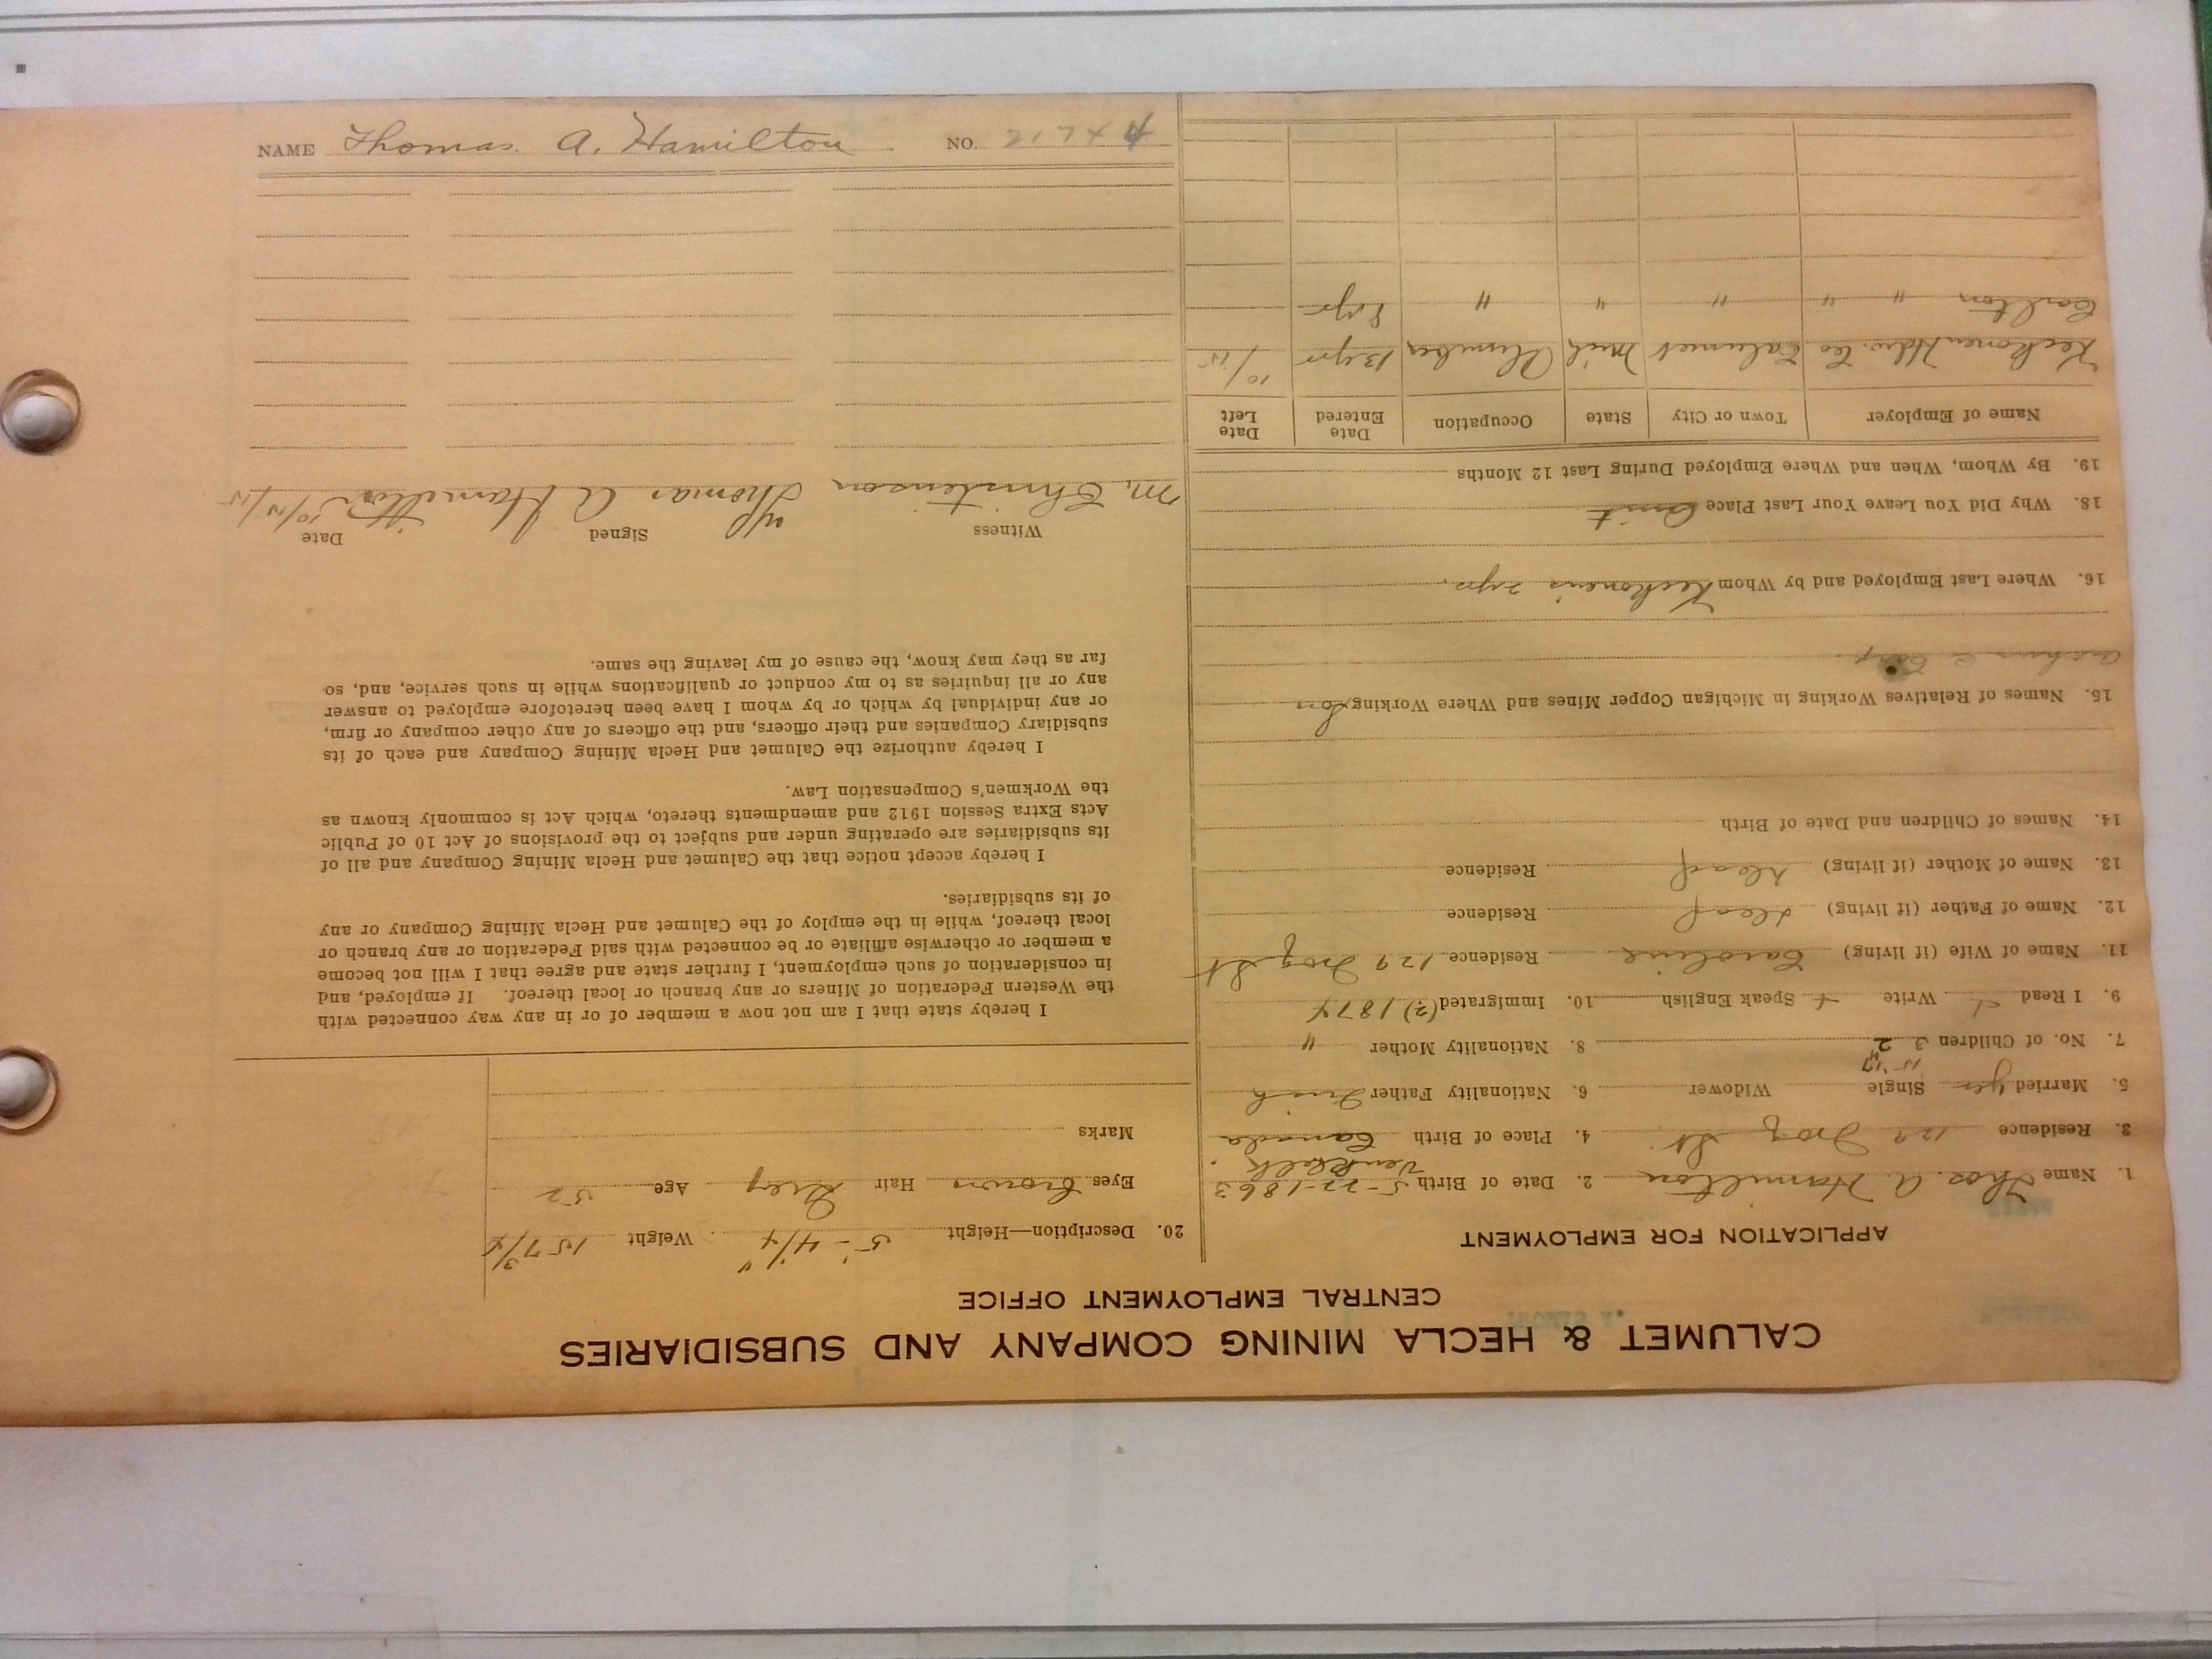 CALUMET & HECLA MINING COMPANY AND SUBSIDIARIES
CENTRAL EMPLOYMENT OFFICE
APPLICATION FOR EMPLOYMENT
1. Name Thos. A. Hamilton 2. Date of Birth 5-22-1863
3. Residence 129 St 4. Place of Birth Canada
5. Married yes Single Widower 6. Nationality Father Irish
15 17
7. No. of Children 3 2 8. Nationality Mother "
9. I Read Write Speak English 10. Immigrated (2) 1874
11. Name of Wife (if living) Caroline Residence 129 St
12. Name of Father (if living) dead Residence
13. Name of Mother (if living) dead Residence
14. Names of Children and Date of Birth
15. Names of Relatives Working in Michigan Copper Mines and Where Working Son
16. Where Last Employed and by Whom Keckonen's
18. Why Did You Leave Your Last Place Quit
19. By Whom, When and Where Employed During Last 12 Months
Name of Employer Town or City State Occupation Date Entered Date Left
Keckonen Hdw. Co Calumet Mich Plumber 13 yrs 10/15
Carlton " " " " " 8 yrs
20. Description—Height 5'-4 1/4" Weight 157 3/4
Eyes brown Hair Grey Age 52
Marks
I hereby state that I am not now a member of or in any way connected with
the Western Federation of Miners or any branch or local thereof. If employed, and
in consideration of such employment, I further state and agree that I will not become
a member or otherwise affiliate or be connected with said Federation or any branch or
local thereof, while in the employ of the Calumet and Hecla Mining Company or any
of its subsidiaries.
I hereby accept notice that the Calumet and Hecla Mining Company and all of
its subsidiaries are operating under and subject to the provisions of Act 10 of Public
Acts Extra Session 1912 and amendments thereto, which Act is commonly known as
the Workmen's Compensation Law.
I hereby authorize the Calumet and Hecla Mining Company and each of its
subsidiary Companies and their officers, and the officers of any other company or firm,
or any individual by which or by whom I have been heretofore employed to answer
any or all inquiries as to my conduct or qualifications while in such service, and, so
far as they may know, the cause of my leaving the same.
Witness Signed Date
M. Christenson Thomas A Hamilton 10/15/15
NAME Thomas A. Hamilton NO. 21744